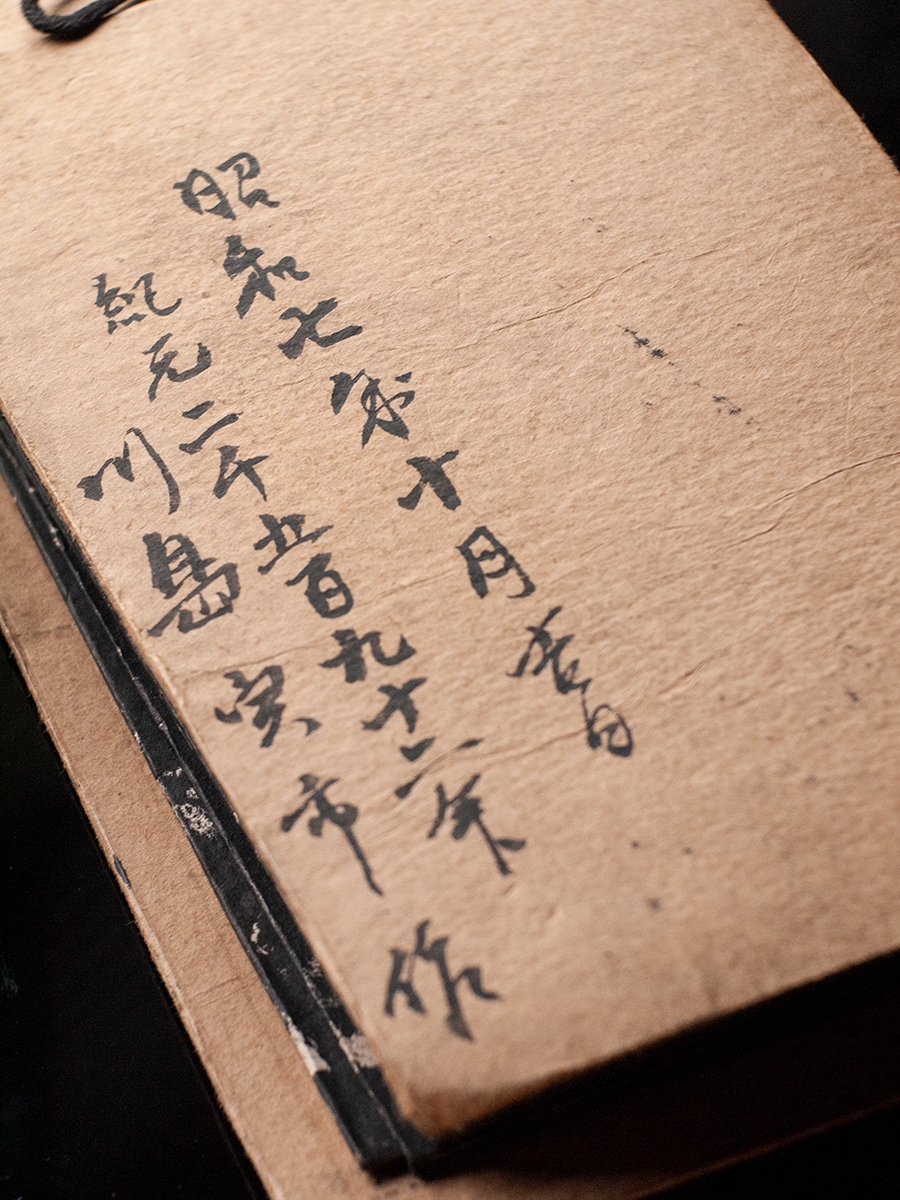 昭和七歳十月吉日
紀元二千五百九十二年
川島実市作